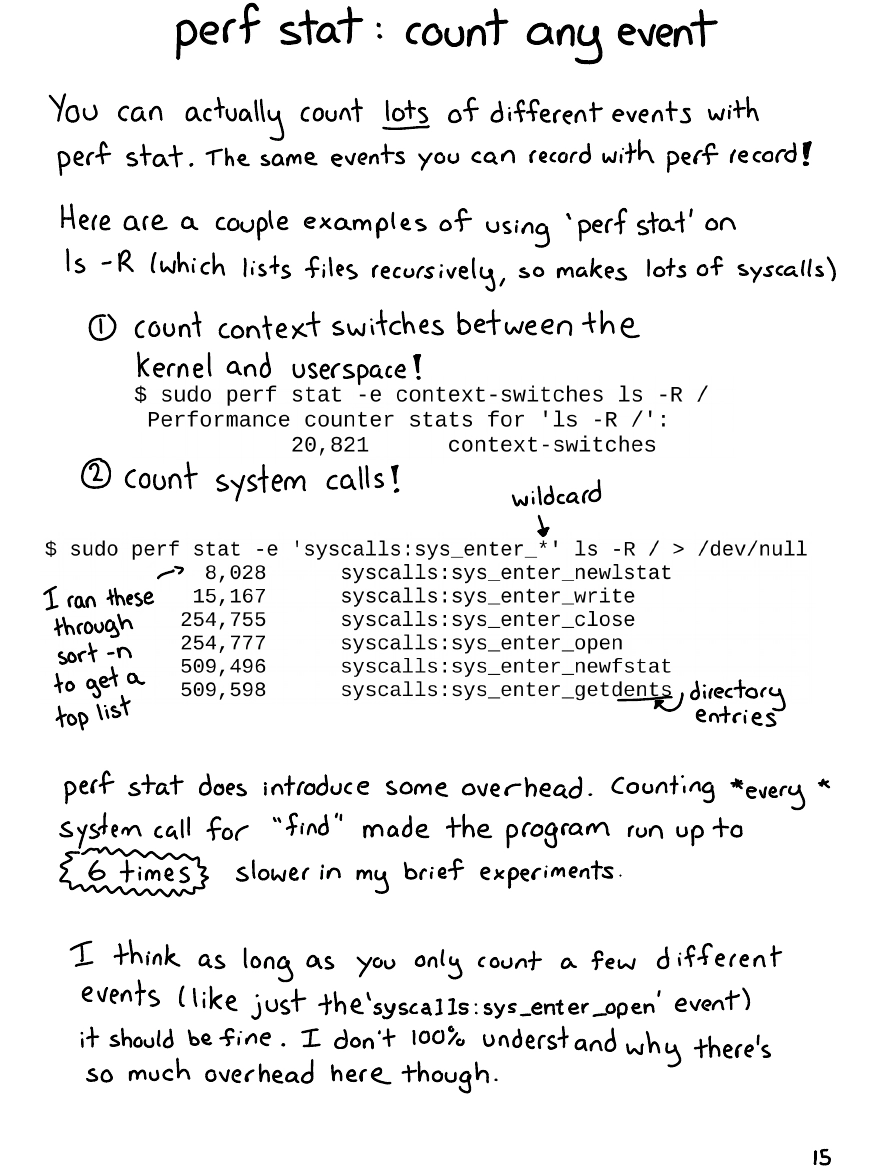 perf stat: count any event
You can actually count lots of different events with
perf stat. The same events you can record with perf record!
Here are a couple examples of using 'perf stat' on
ls -R (which lists files recursively, so makes lots of syscalls)
① count context switches between the
kernel and userspace!
$ sudo perf stat -e context-switches ls -R /
Performance counter stats for 'ls -R /':
20,821 context-switches
② count system calls!
wildcard
$ sudo perf stat -e 'syscalls:sys_enter_*' ls -R / > /dev/null
8,028 syscalls:sys_enter_newlstat
15,167 syscalls:sys_enter_write
254,755 syscalls:sys_enter_close
254,777 syscalls:sys_enter_open
509,496 syscalls:sys_enter_newfstat
509,598 syscalls:sys_enter_getdents
I ran these
through
sort -n
to get a
top list
directory
entries
perf stat does introduce some overhead. Counting *every*
system call for "find" made the program run up to
6 times slower in my brief experiments.
I think as long as you only count a few different
events (like just the 'syscalls:sys_enter_open' event)
it should be fine. I don't 100% understand why there's
so much overhead here though.
15